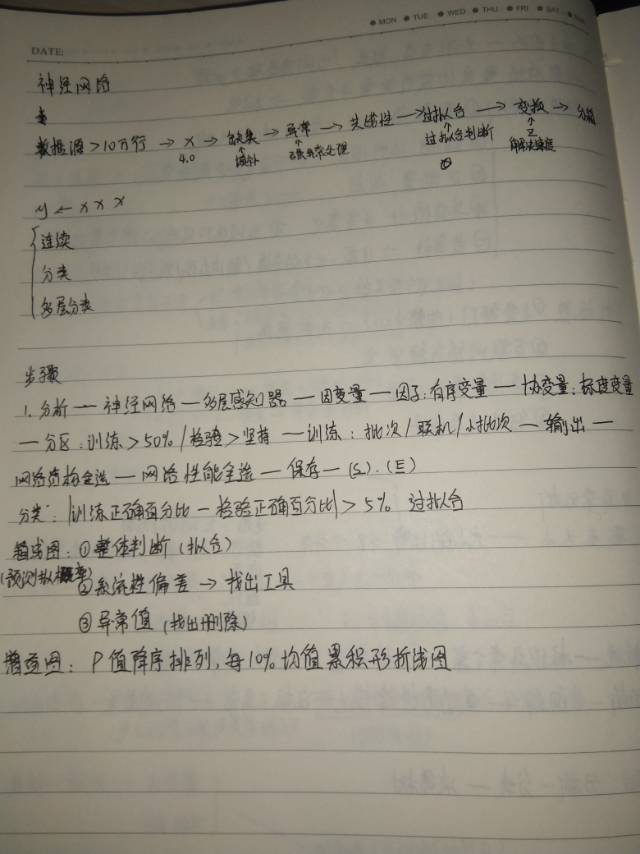 MON TUE WED THU FRI SAT SUN
DATE:
神经网络
数据源 >10万行 → x → 缺失 → 异常 → 共线性 → 过拟合 → 变换 → 分箱
4.0 ↑填补 ↑ ↑过拟合判断 ↑Z
y ← x x x
连续
分类
多层分类
步骤
1. 分析 — 神经网络 — 多层感知器 — 因变量 — 因子:有序变量 — 协变量:标度变量
— 分区:训练>50% / 检验>坚持 — 训练:批次/联机/小批次 — 输出 —
网络结构全选 — 网络性能全选 — 保存 — (S).(E)
分类:|训练正确百分比 — 检验正确百分比| > 5% 过拟合
箱线图:①整体判断(拟合)
(预测拟概率)
②系统性偏差 → 找出工具
③异常值(找出删除)
增益图:P值降序排列,每10%均值累积形折线图